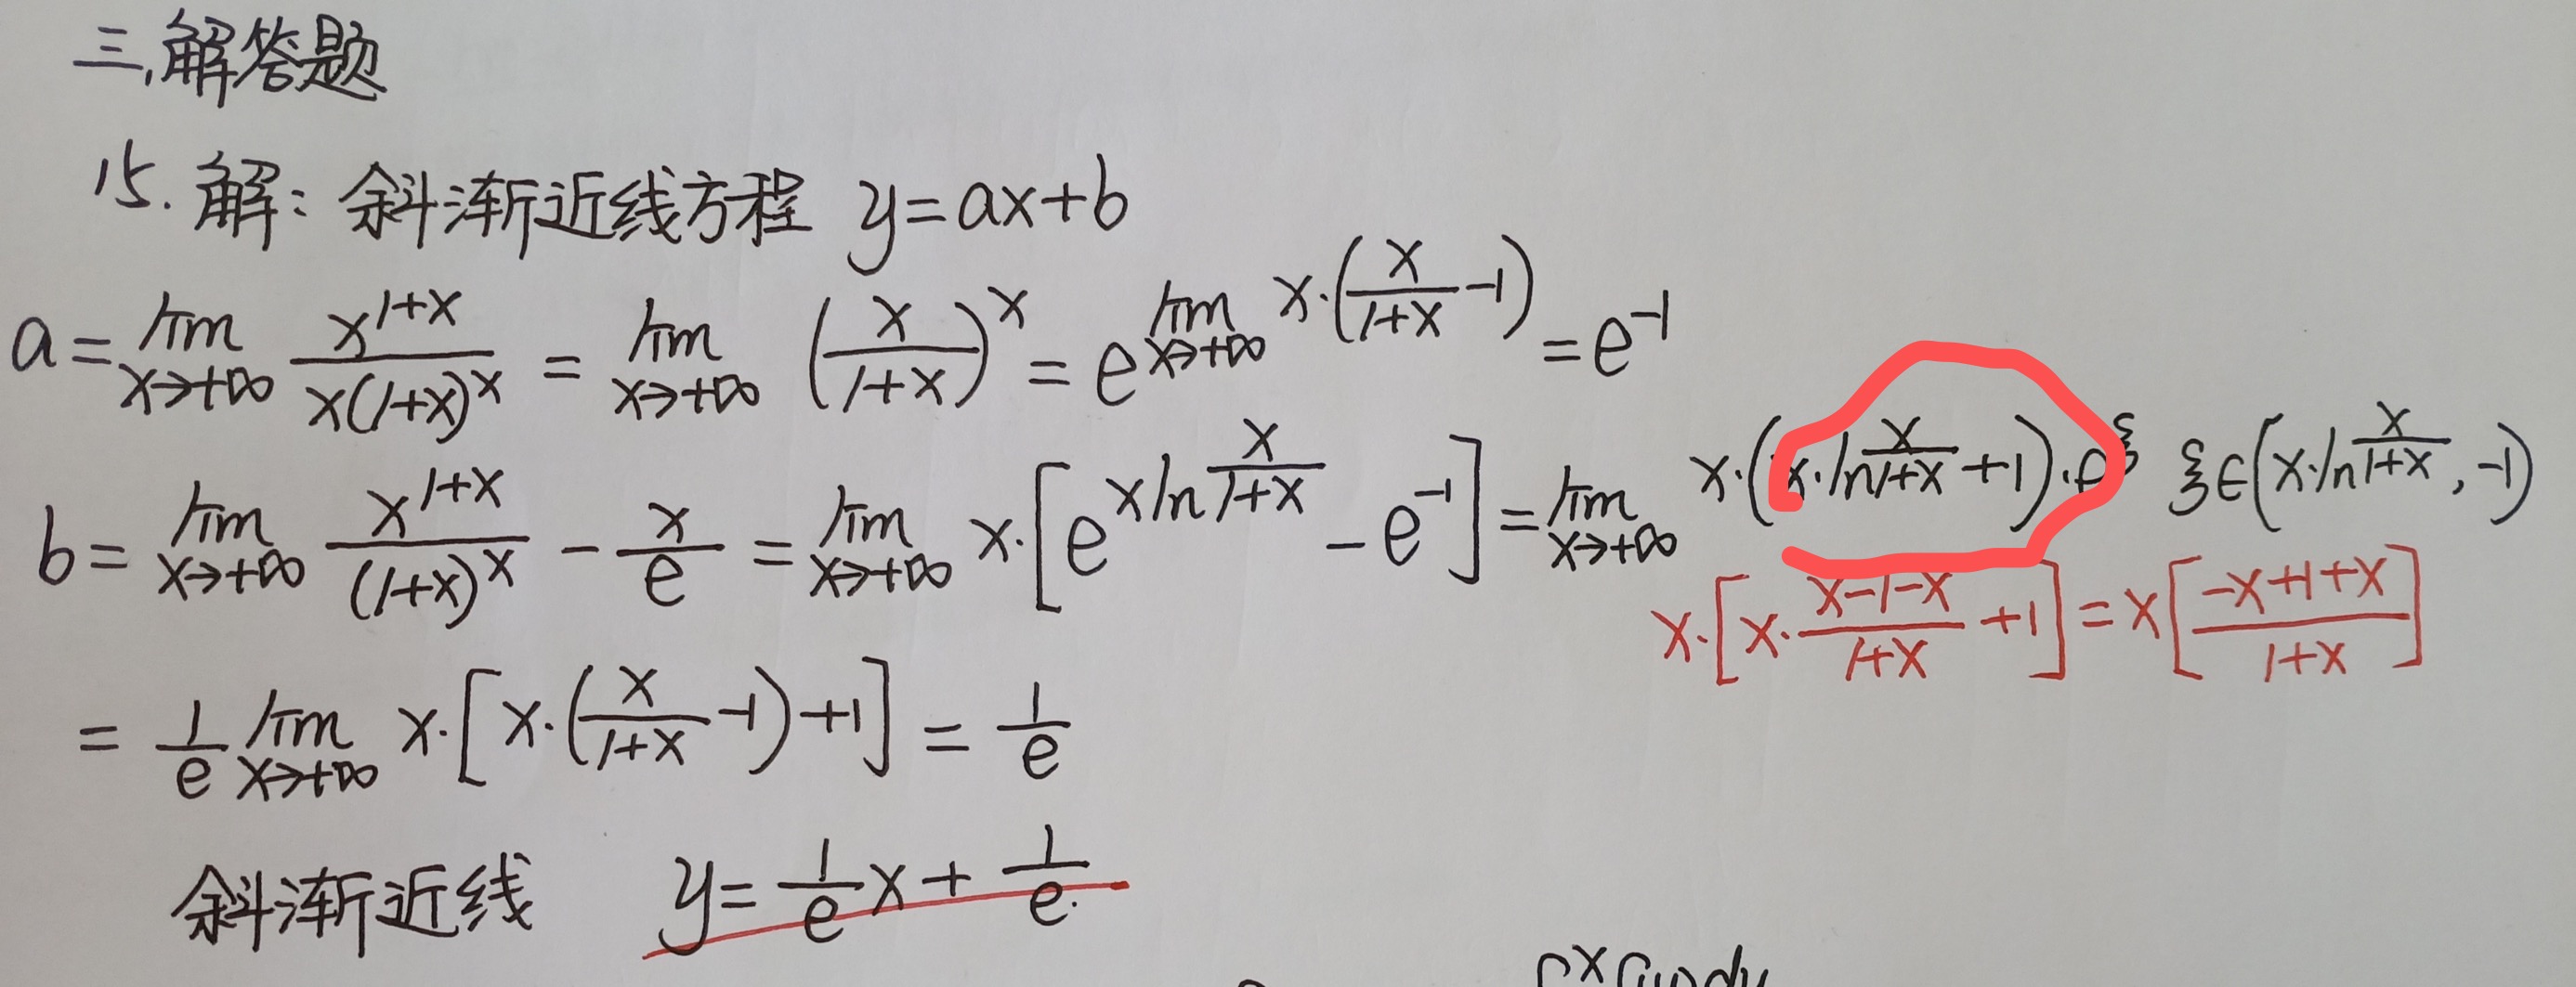 三、解答题
15. 解: 斜渐近线方程 y=ax+b
a = lim_{x→+∞} x^{1+x}/(x(1+x)^x) = lim_{x→+∞} (x/(1+x))^x = e^{lim_{x→+∞} x·(x/(1+x) -1)} = e^{-1}
b = lim_{x→+∞} x^{1+x}/(1+x)^x - x/e = lim_{x→+∞} x·[e^{x ln x/(1+x)} - e^{-1}] = lim_{x→+∞} x·(x·ln x/(1+x) +1)·e^ξ ξ∈(x·ln x/(1+x), -1)
x·[x·(x-1-x)/(1+x) +1] = x[(-x+1+x)/(1+x)]
= 1/e lim_{x→+∞} x·[x·(x/(1+x) -1)+1] = 1/e
斜渐近线 y = 1/e x + 1/e.